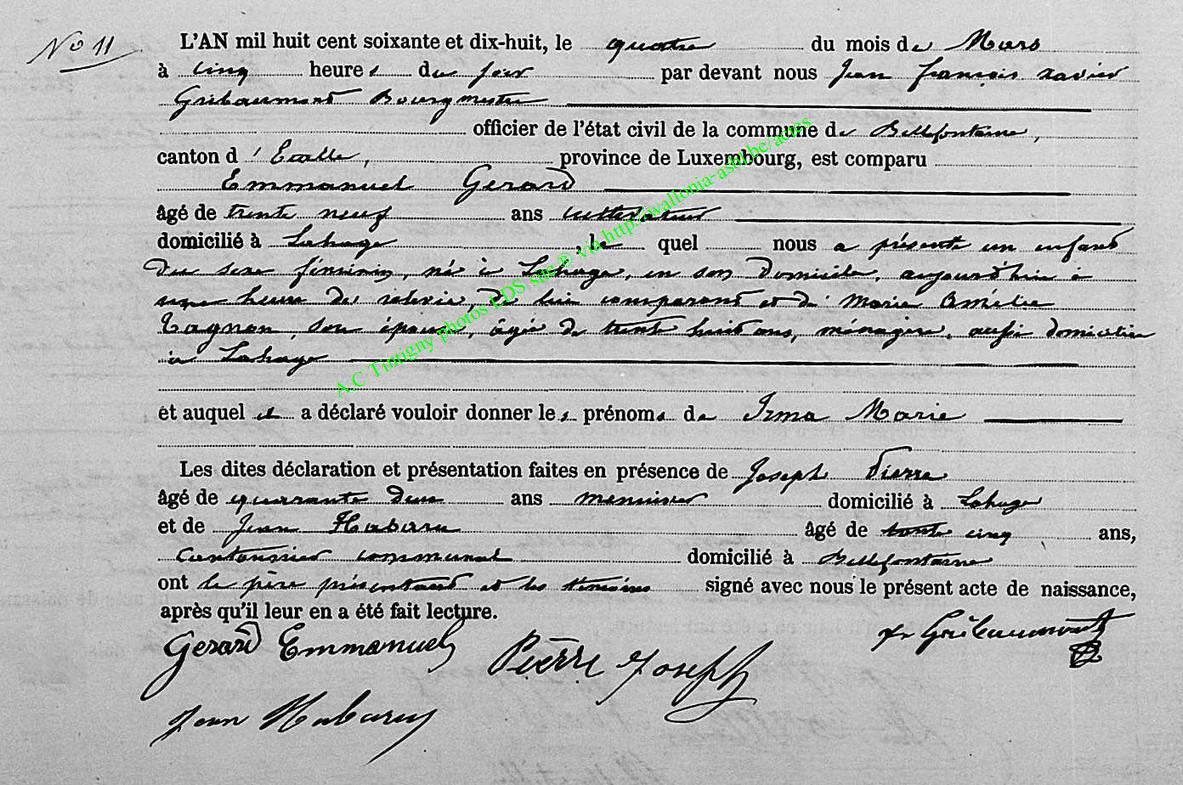 No 11
L'AN mil huit cent soixante et dix-huit, le quatre du mois de Mars
à cinq heures du soir par devant nous Jean françois xavier
Gribaumont Bourgmestre
officier de l'état civil de la commune de Bellefontaine,
canton d'Etalle, province de Luxembourg, est comparu
Emmanuel Gerard
âgé de trente neuf ans cultivateur
domicilié à Lahage, le quel nous a présenté un enfant
du sexe féminin, né à Lahage, en son domicile, aujourd'hui à
heure de relevée, de lui comparant et de Marie Amélie
Tagnon, son épouse, âgée de trente huit ans, ménagère, aussi domiciliée
à Lahage
et auquel il a déclaré vouloir donner les prénoms de Irma Marie
Les dites déclaration et présentation faites en présence de Joseph Pierre
âgé de quarante deux ans menuisier domicilié à Lahage
et de Jean Habaru âgé de trente cinq ans,
Cantonnier communal domicilié à Bellefontaine
ont le père présentant et les témoins signé avec nous le présent acte de naissance,
après qu'il leur en a été fait lecture.
Gerard Emmanuel Pierre Joseph Gribaumont
Jean Habaru
A.C Tintigny photos LDS site © via http://wallonia-asbl.be/actes